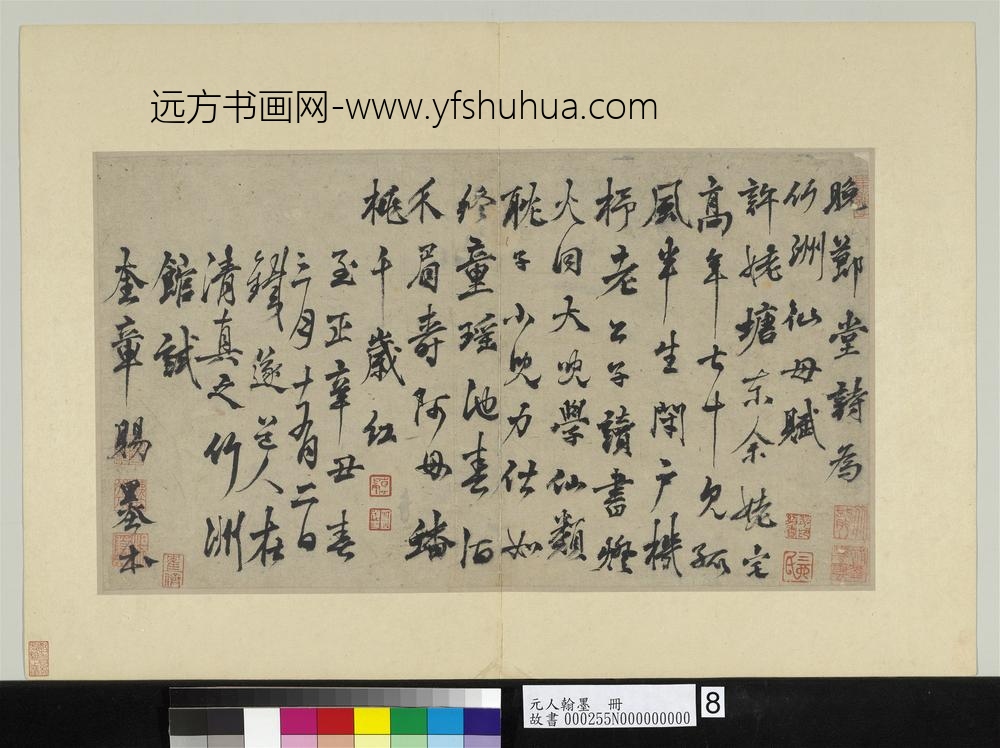 远方书画网-www.yfshuhua.com
晚節堂詩為
竹洲仙母賦
許姥塘東余姥宅
高年七十見孤
風半生閉戶機
杼老公子讀書燈
火同大兒學仙類
聃子小兒力仕如
終童瑤池春酒
介眉壽阿母蟠
桃千歲紅
至正辛丑春
三月十有二日
鐵邃道人在
清真之竹洲
館試
奎章賜墨本
元人翰墨 冊
故書 000255N000000000
8